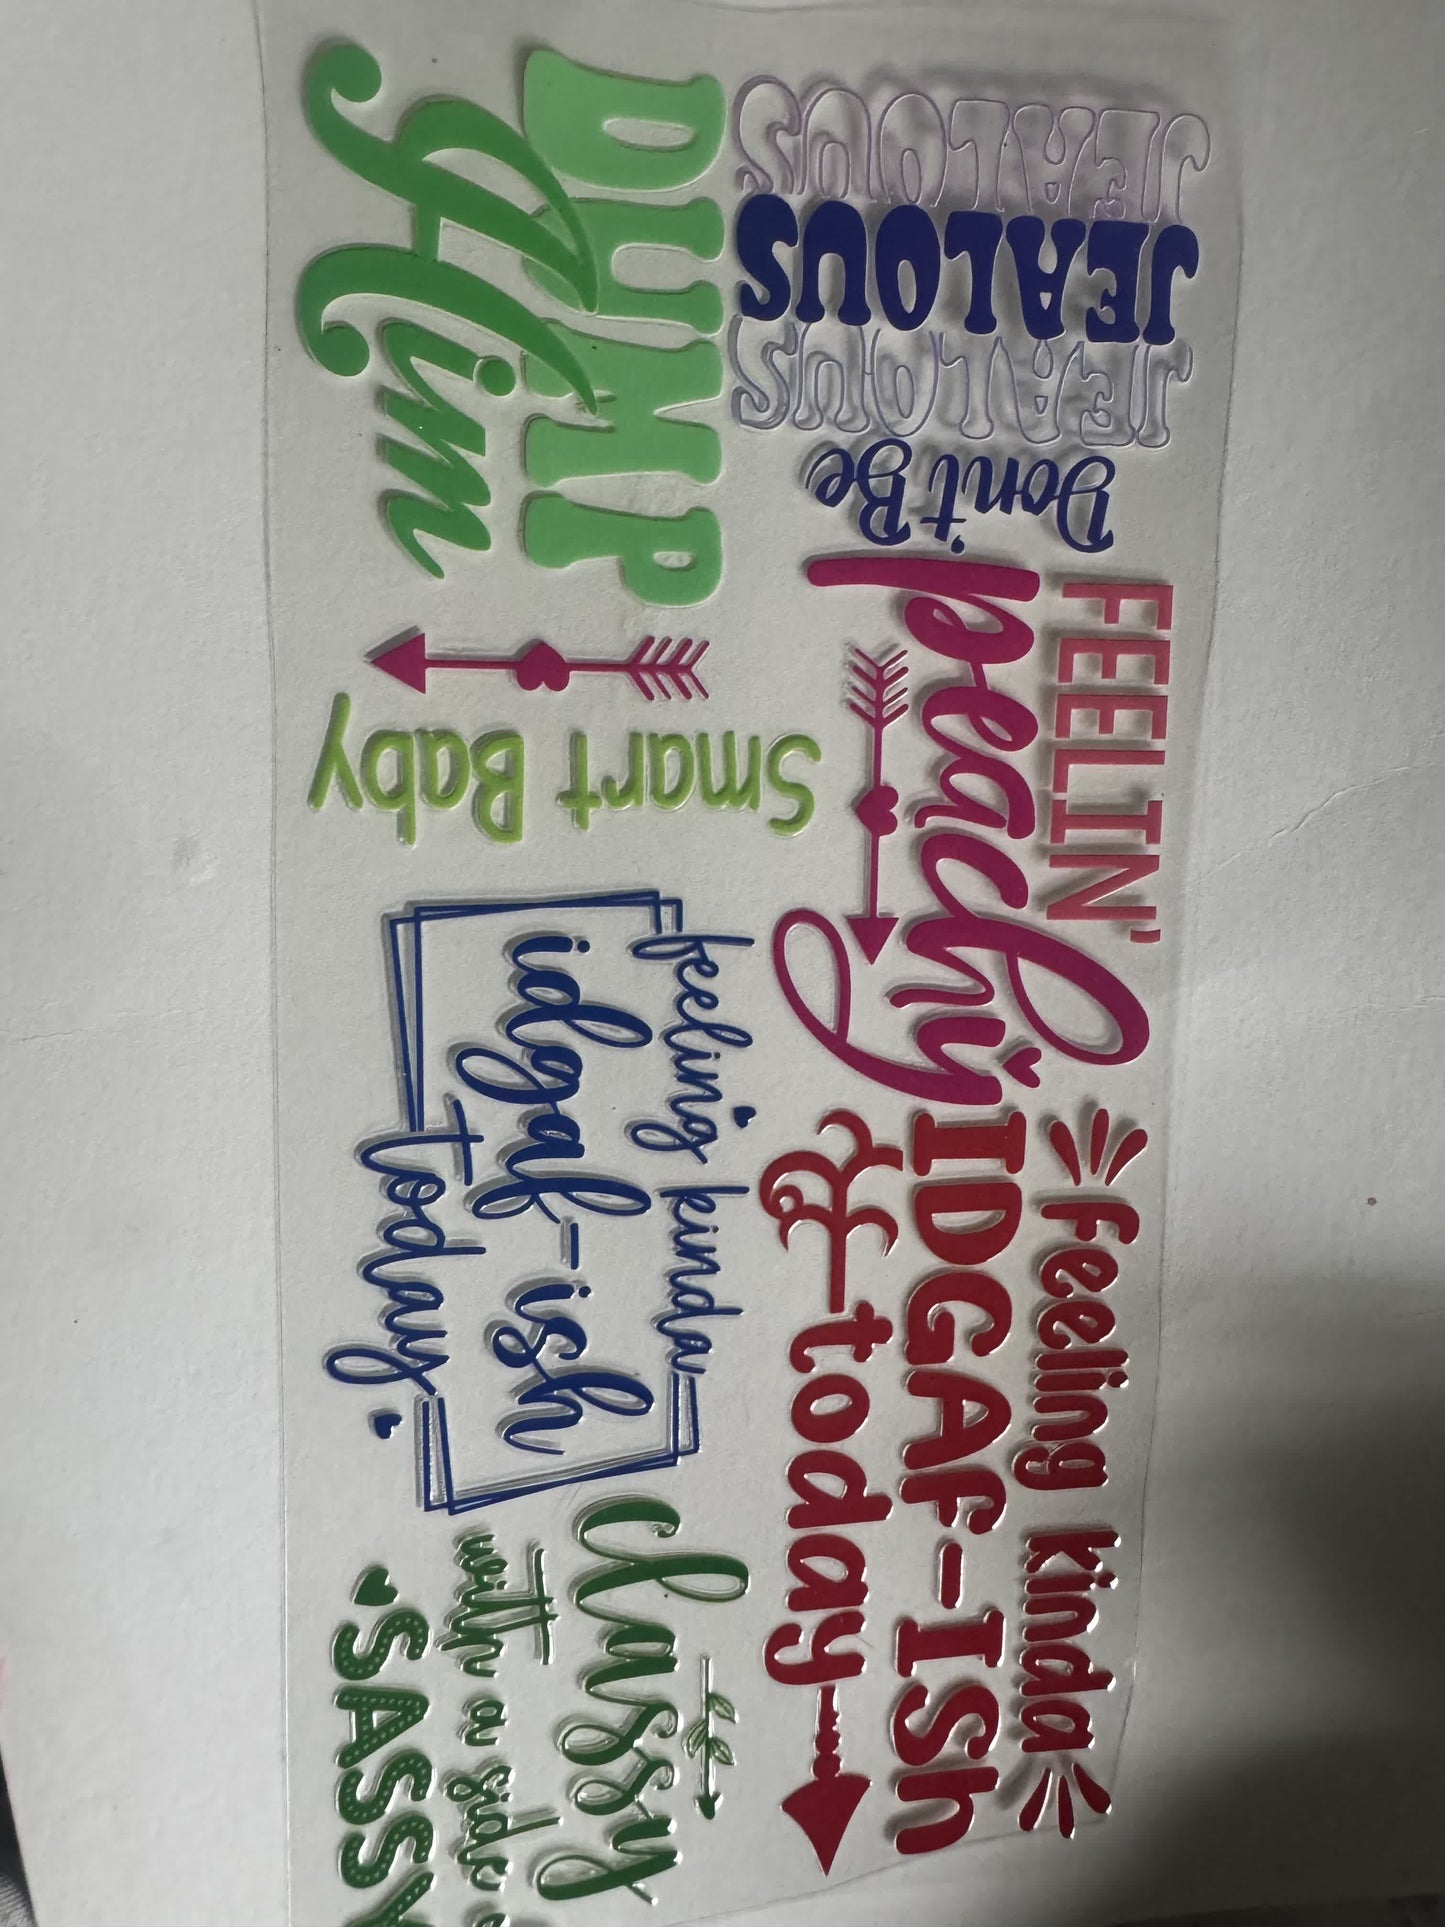 DUMP
Him
JEALOUS
JEALOUS
JEALOUS
Don't Be
Smart Baby
FEELIN'
peachy
feeling kinda
idgaf-ish
today
Feeling kinda
IDGAF-ISh
today
classy
with a side
SASSY